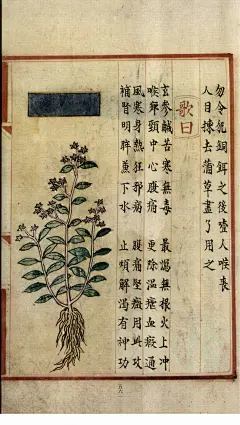 勿令犯銅餌之後噎人喉喪
人目揀去蒲草盡了用之
歌曰
玄參鹹苦寒無毒 最無根火上冲
喉痹頸中心腹痛 更除溫瘧血瘕通
風寒身熱狂邪病 腰痛堅癥用此攻
補腎明眸兼下水 止煩解渴有神功